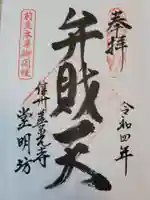 奉拝
令和四年
弁財天
信州善光寺
堂明坊